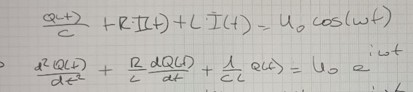 Q(t)/C + R·I(t) + L·İ(t) = U₀ cos(ωt)
d²Q(t)/dt² + R/L dQ(t)/dt + 1/CL Q(t) = U₀ e^iωt